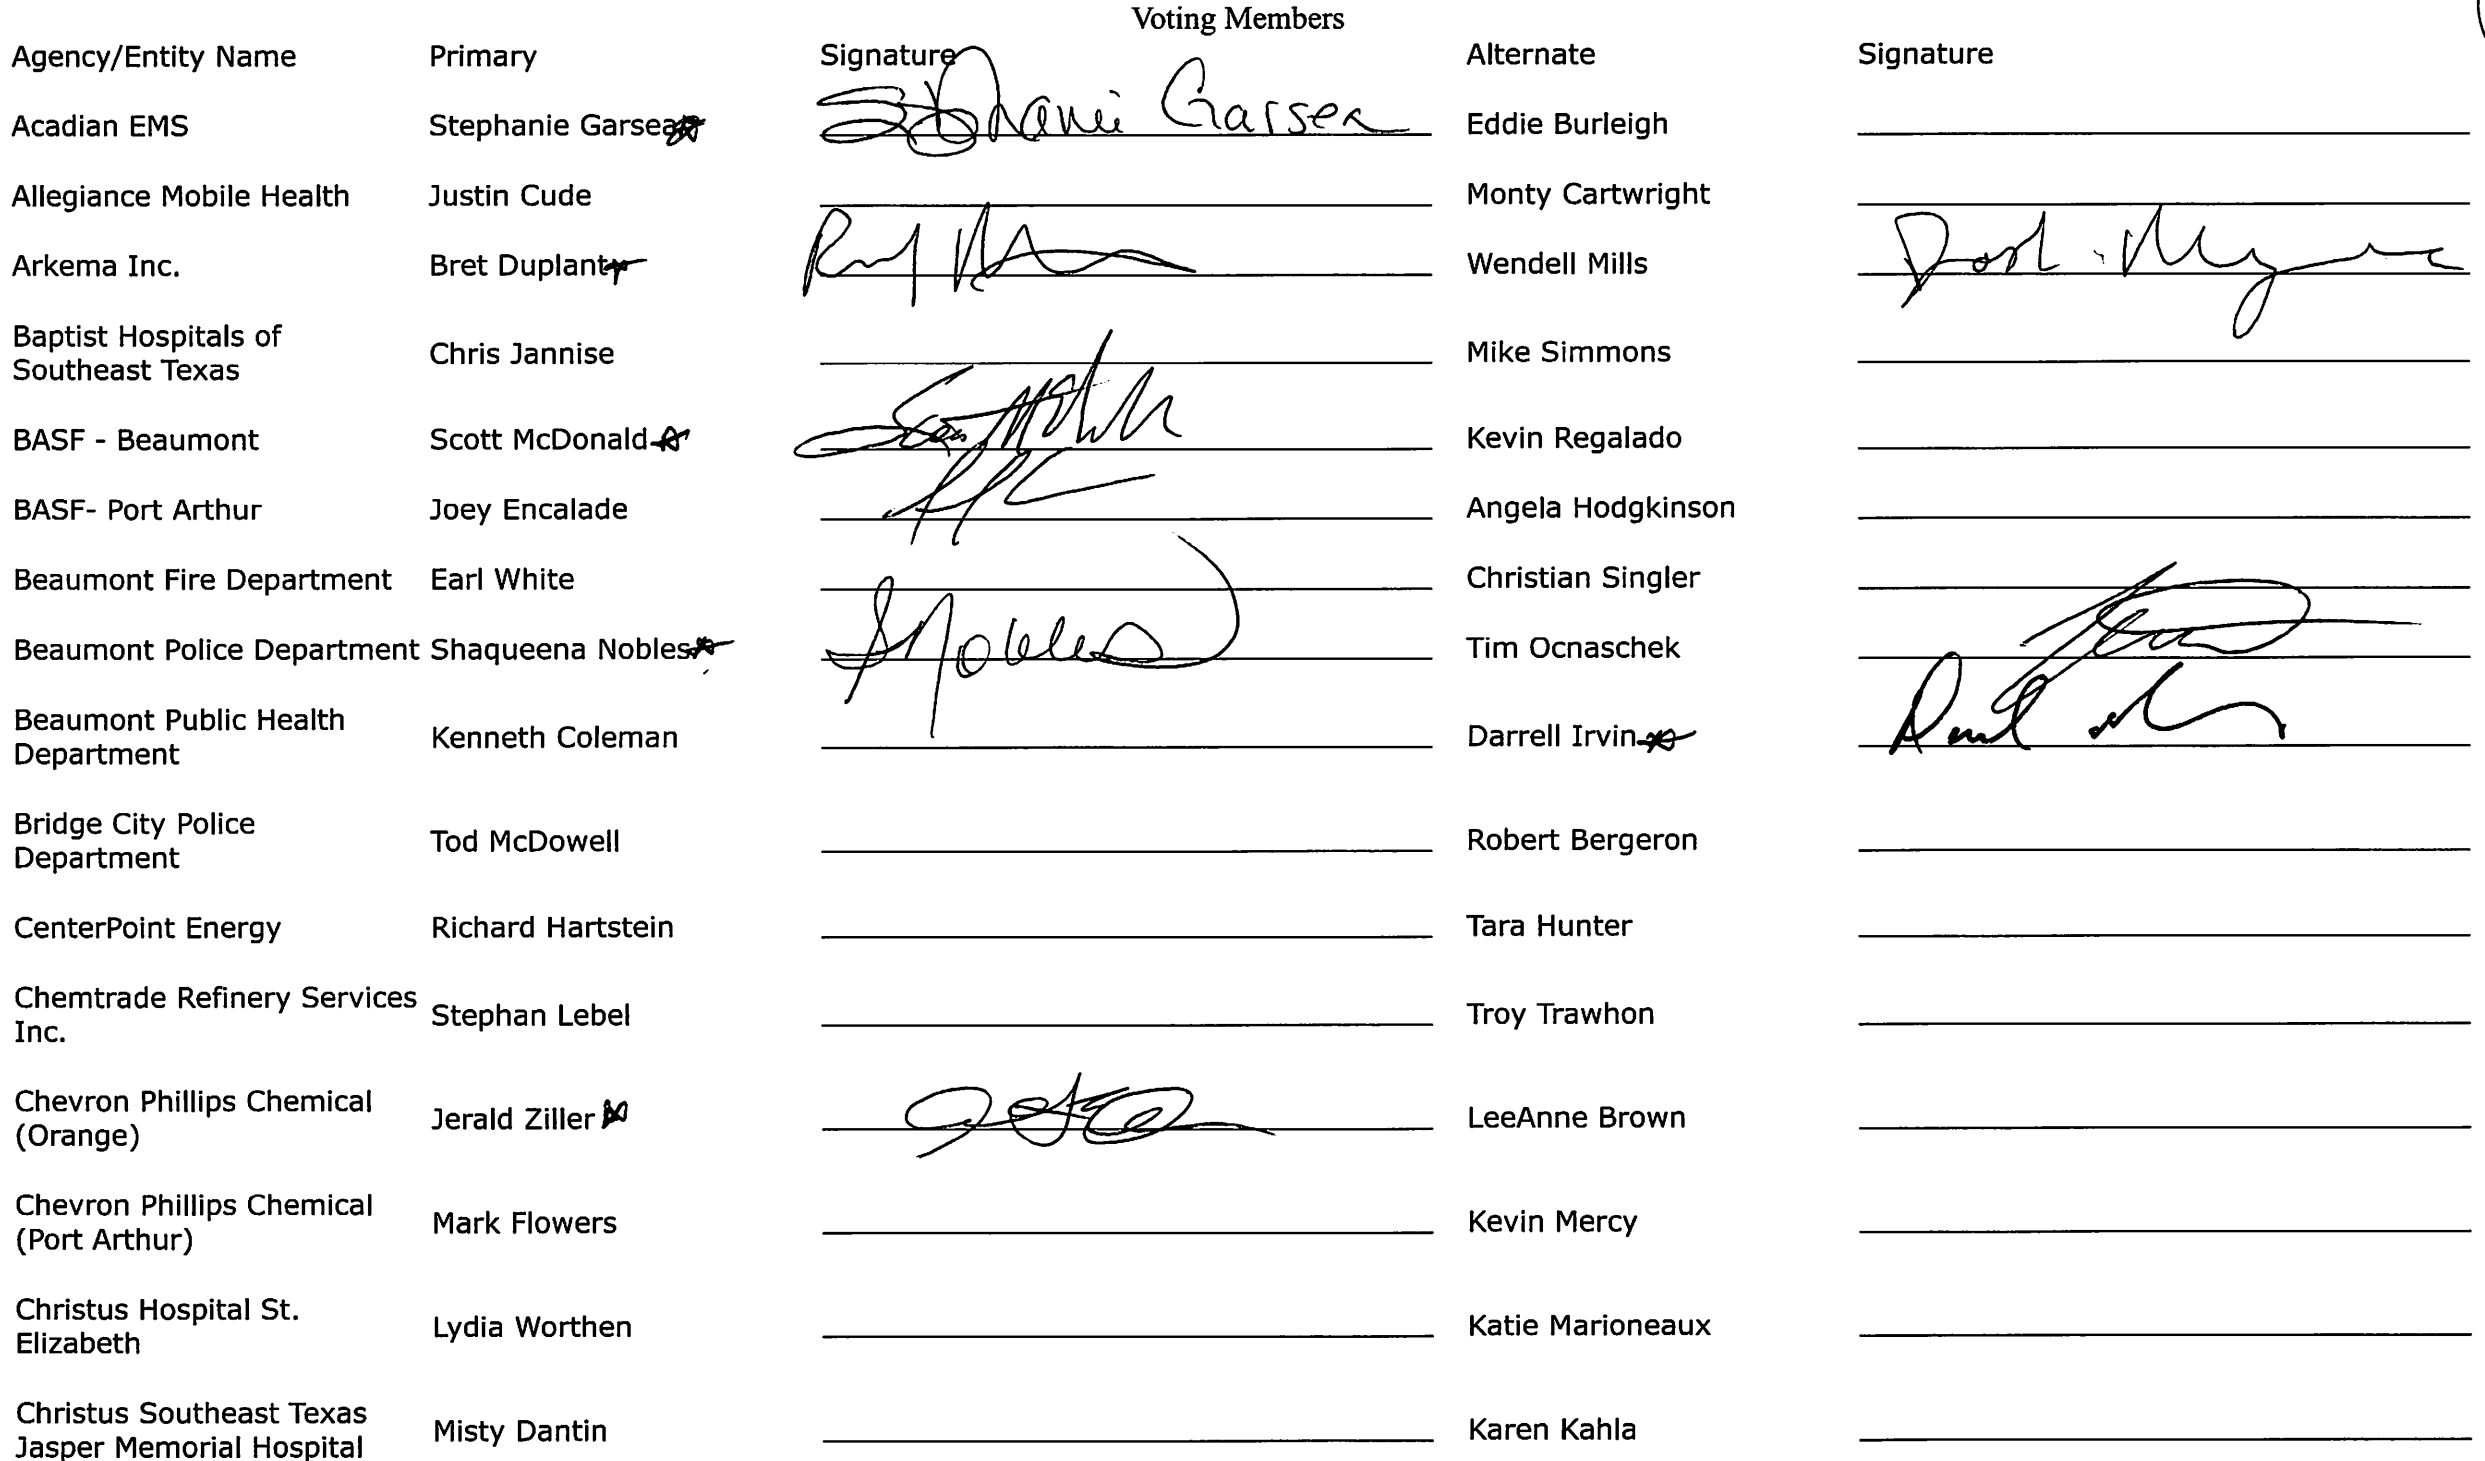 Voting Members
Agency/Entity Name Primary Signature Alternate Signature
Acadian EMS Stephanie Garsea Stephanie Garsea Eddie Burleigh
Allegiance Mobile Health Justin Cude Monty Cartwright
Arkema Inc. Bret Duplant Wendell Mills
Baptist Hospitals of
Southeast Texas Chris Jannise Mike Simmons
BASF - Beaumont Scott McDonald Kevin Regalado
BASF- Port Arthur Joey Encalade Angela Hodgkinson
Beaumont Fire Department Earl White Christian Singler
Beaumont Police Department Shaqueena Nobles SNobles Tim Ocnaschek
Beaumont Public Health
Department Kenneth Coleman Darrell Irvin
Bridge City Police
Department Tod McDowell Robert Bergeron
CenterPoint Energy Richard Hartstein Tara Hunter
Chemtrade Refinery Services
Inc. Stephan Lebel Troy Trawhon
Chevron Phillips Chemical
(Orange) Jerald Ziller LeeAnne Brown
Chevron Phillips Chemical
(Port Arthur) Mark Flowers Kevin Mercy
Christus Hospital St.
Elizabeth Lydia Worthen Katie Marioneaux
Christus Southeast Texas
Jasper Memorial Hospital Misty Dantin Karen Kahla